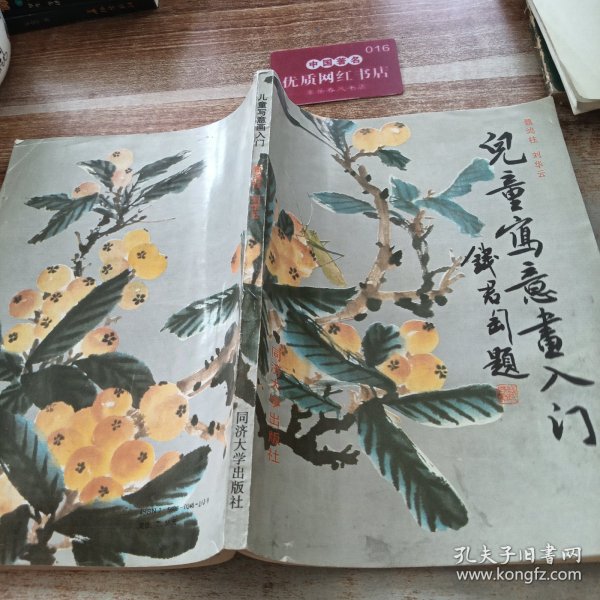 016
中国著名
优质网红书店
儿童写意画入门
刘华云
兒童寫意畫入门
錢君匋題
同济大学出版社
同济大学出版社
孔夫子旧书网
www.kongfz.com